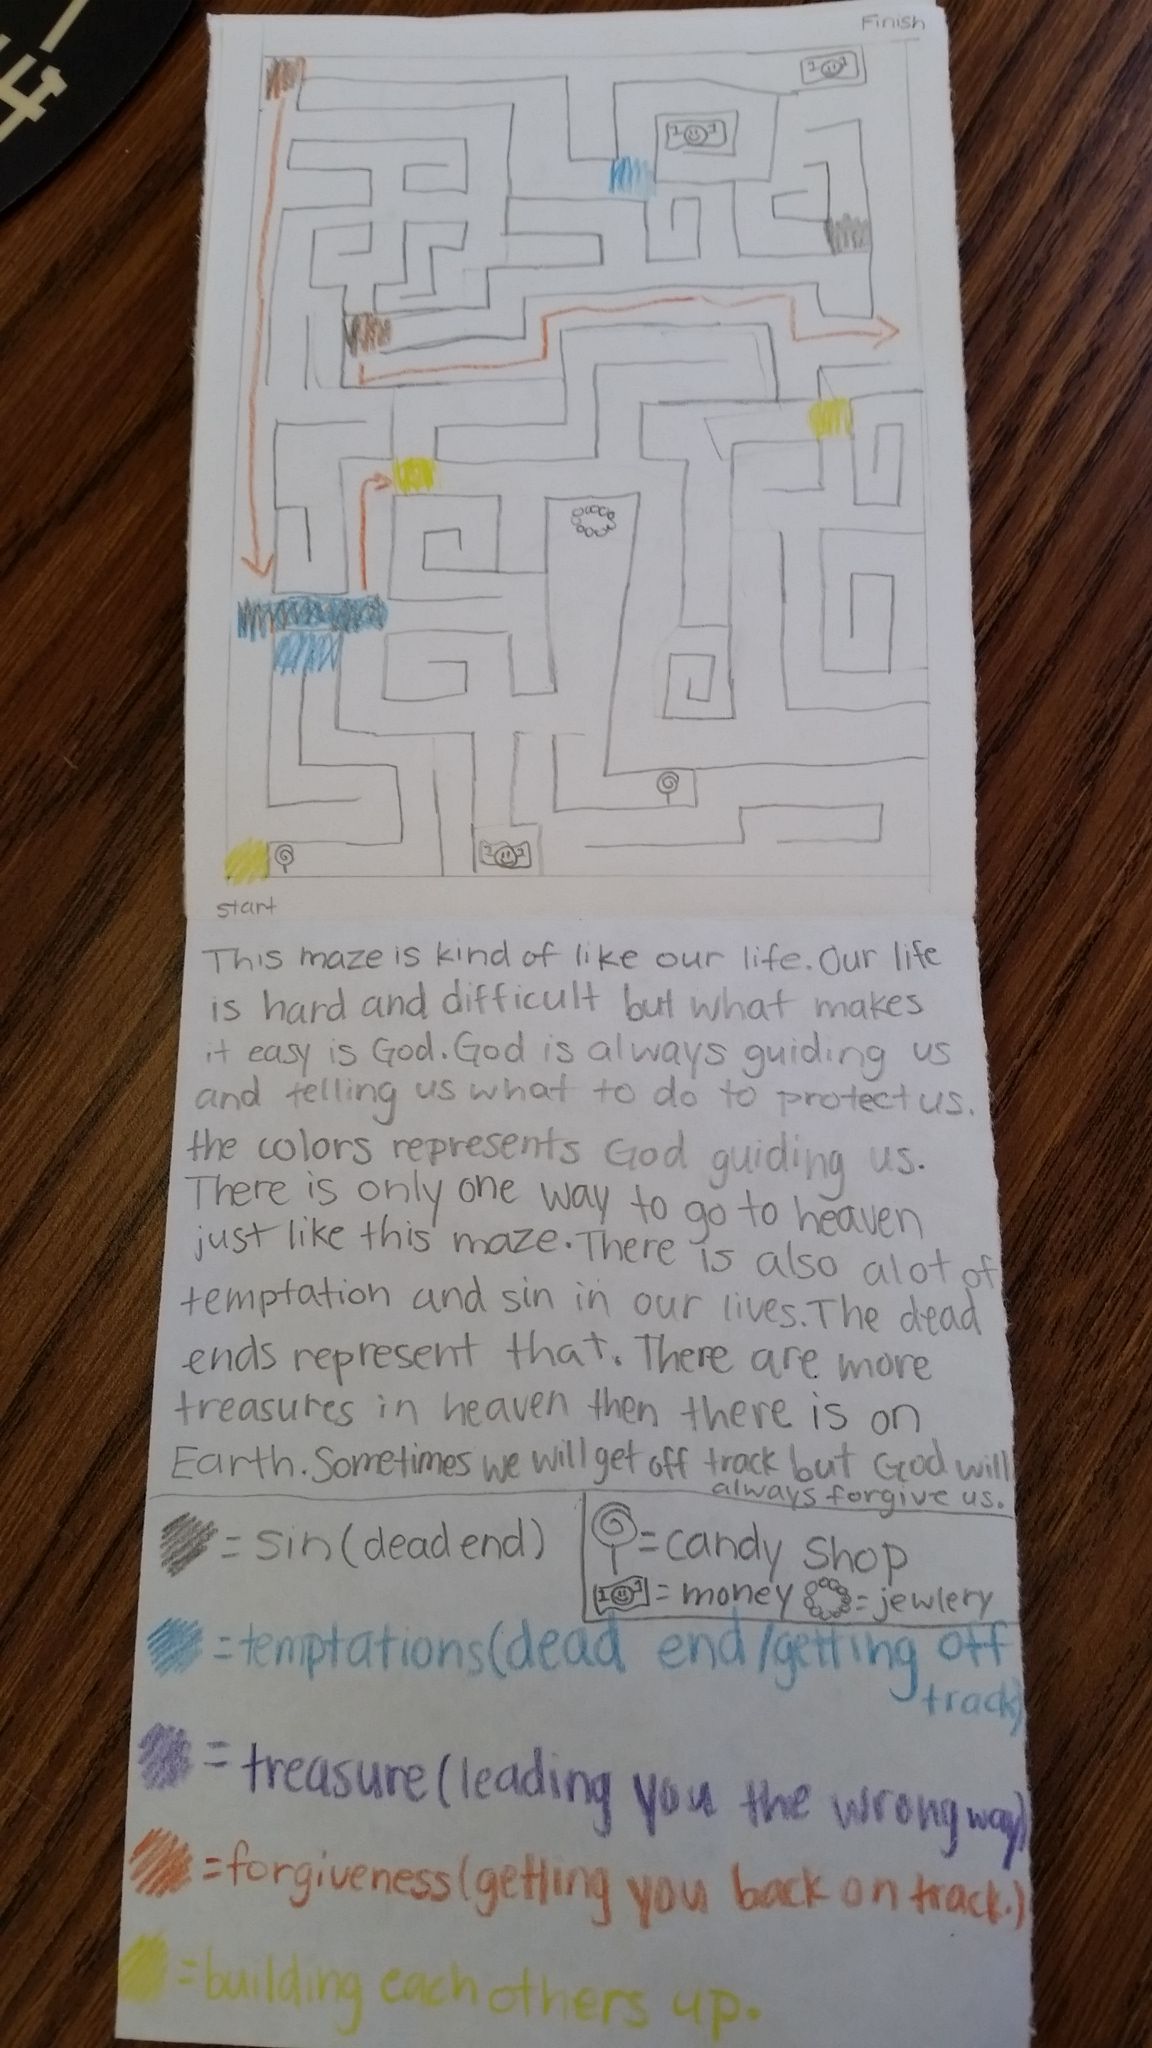 Finish
start
This maze is kind of like our life. Our life
is hard and difficult but what makes
it easy is God. God is always guiding us
and telling us what to do to protect us.
the colors represents God guiding us.
There is only one way to go to heaven
just like this maze. There is also alot of
temptation and sin in our lives. The dead
ends represent that. There are more
treasures in heaven then there is on
Earth. Sometimes we will get off track but God will
always forgive us.
= sin (dead end)
= candy shop
= money = jewlery
= temptations (dead end/getting off
track)
= treasure (leading you the wrong way)
= forgiveness (getting you back on track.)
= building each others up.